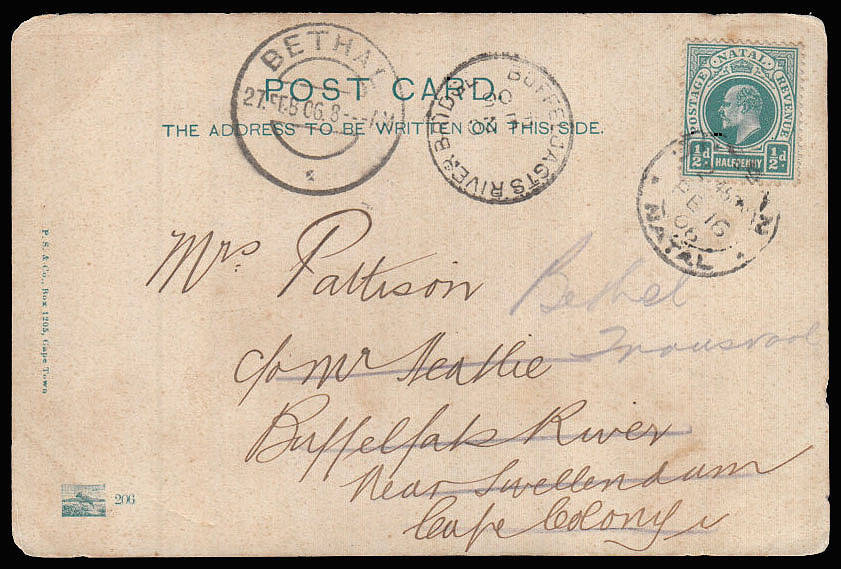 POST CARD.
THE ADDRESS TO BE WRITTEN ON THIS SIDE.
BETHAL
27 FEB 06. 8
BUFFELJAGTS RIVER BRIDGE
POSTAGE NATAL REVENUE
½d HALFPENNY ½d
FE 16
06
NATAL
Mrs Pattison
c/o Mr Neathie
Buffelfats River
Near Swellendam
Cape Colony
Bethel
Transvaal
P. S. & Co., Box 1205, Cape Town
206